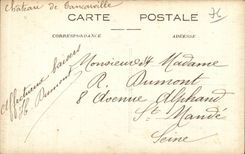 Château de Tancarville
76
CARTE POSTALE
CORRESPONDANCE
ADRESSE
Affectueux baisers
Dumont
Monsieur et Madame
R. Dumont
8 Avenue Alphand
St Mandé
Seine